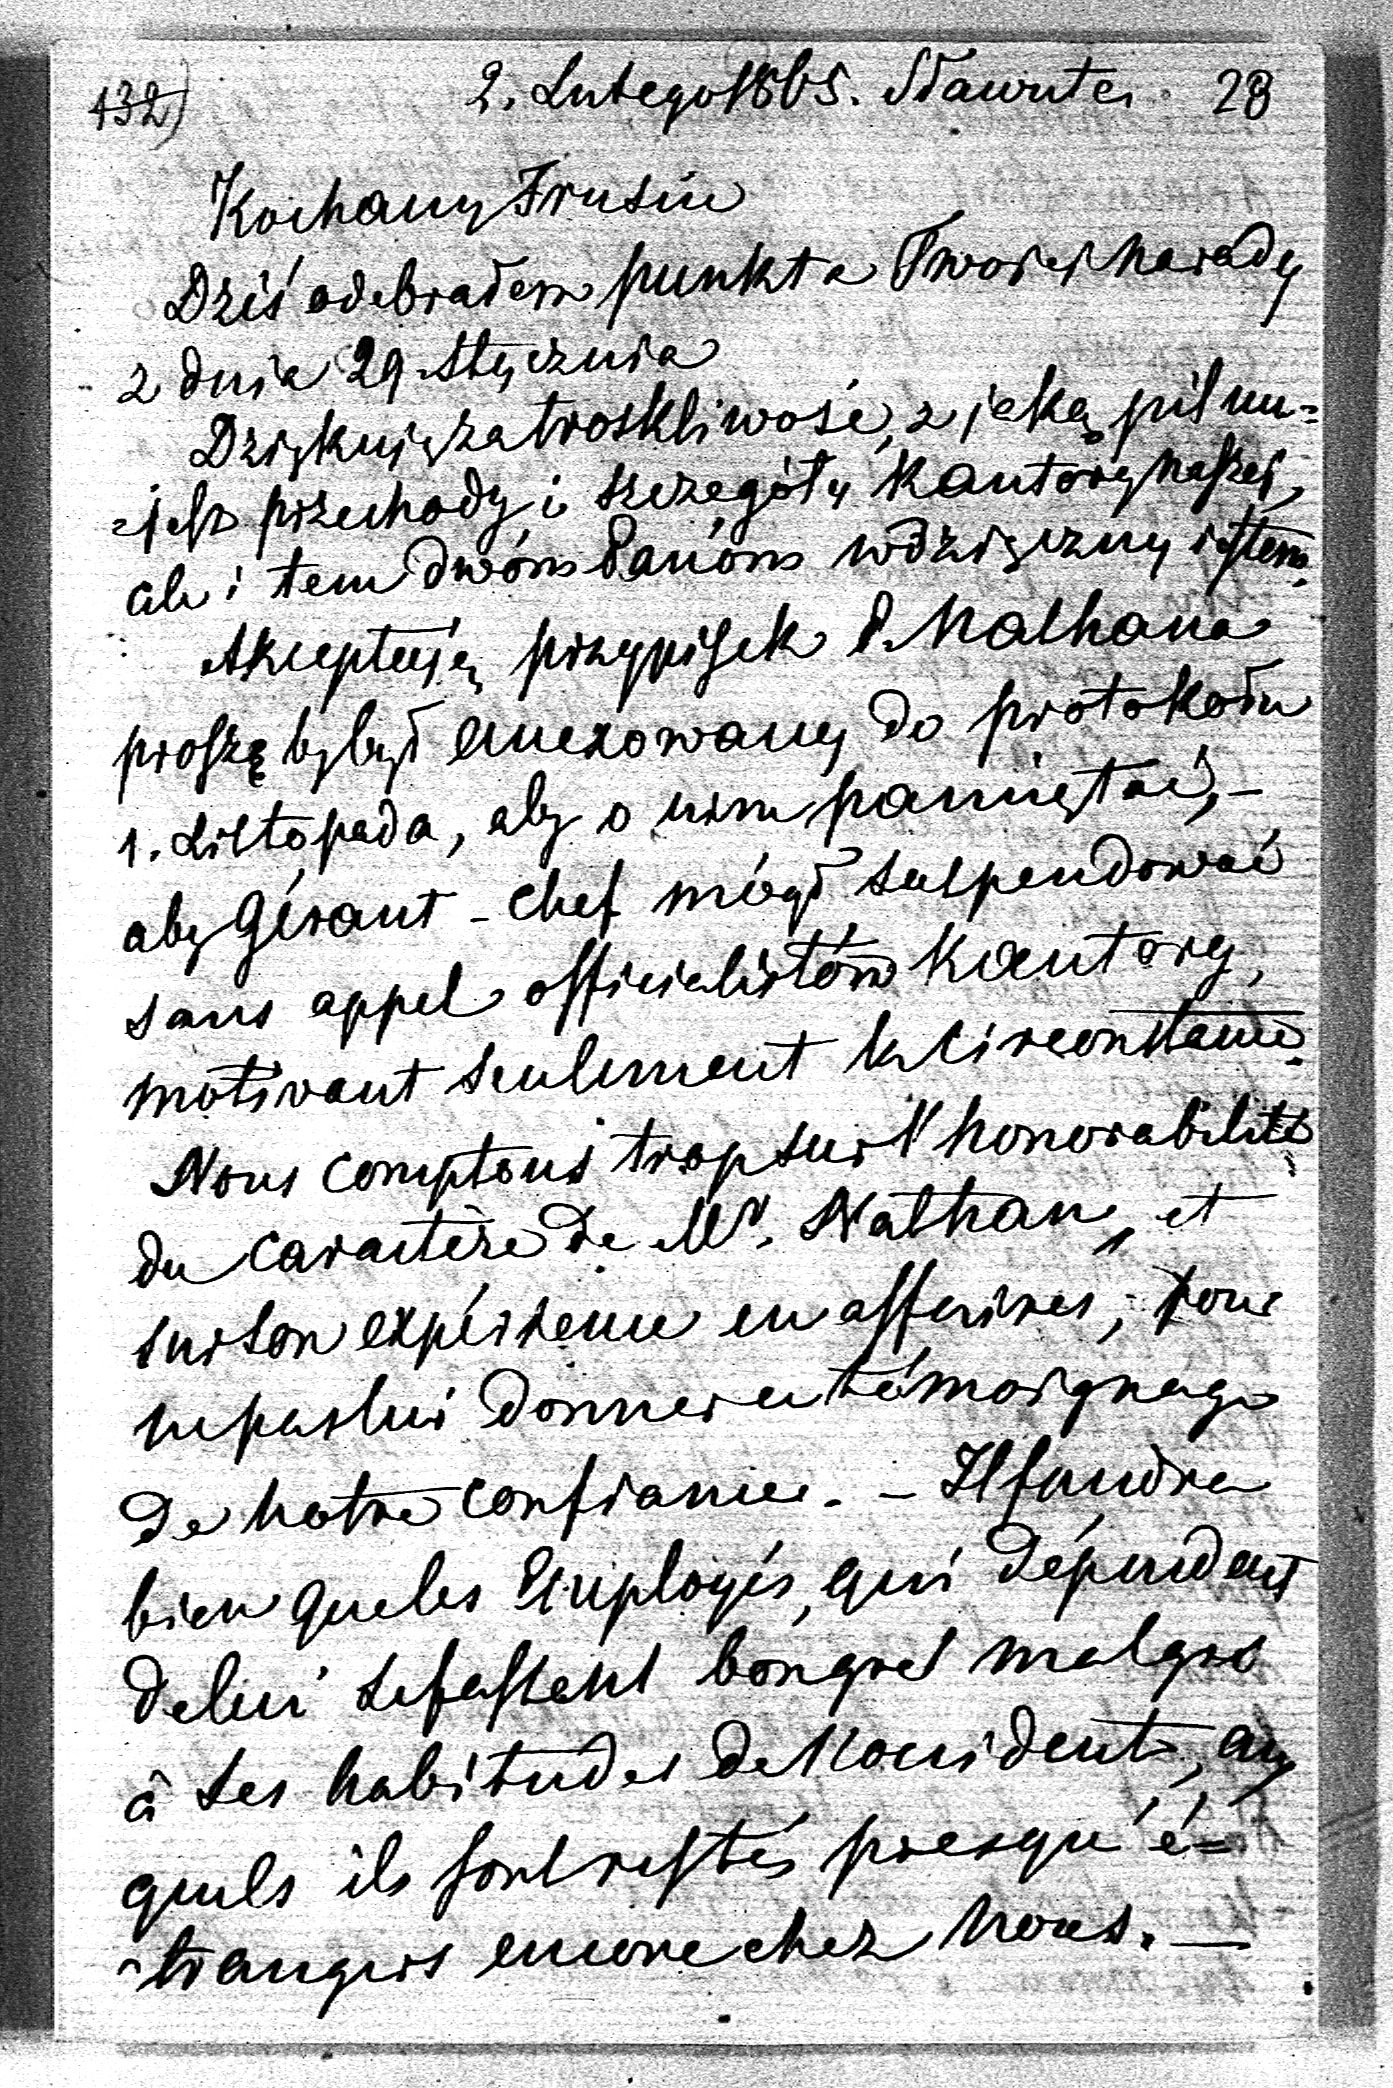 132) 2. Lutego 1865. Sławuta 28
Kochany Frusiu
Dziś odebrałem punkta Twojej narady
z dnia 29 Stycznia
Dziękuję za troskliwość, z jaką pilnu=
=jesz przechody i szczegóły Kantory naszej,
ale i tem dwóm Panóm wdzięczny jestem.
Akceptuję przypisek P. Nathana
proszę by był annexowany do protokołu
1. Listopada, aby o nim pamiętać, –
aby Gérant – chef mógł suspendować
sans appel officialistów Kantory,
motivant seulement la circonstance.
Nous comptons trop sur l'honorabilité
du caractère de Mr. Nathan, et
sur son expérience en affaires, pour
ne pas lui donner ce témoignage
de notre confiance. – Il faudra
bien que les Employés, qui dépendent
de lui se fassent bongré malgré
à ses habitudes de l'occident, aux
quels ils sont restés presqu'é=
=trangers encore chez nous. —